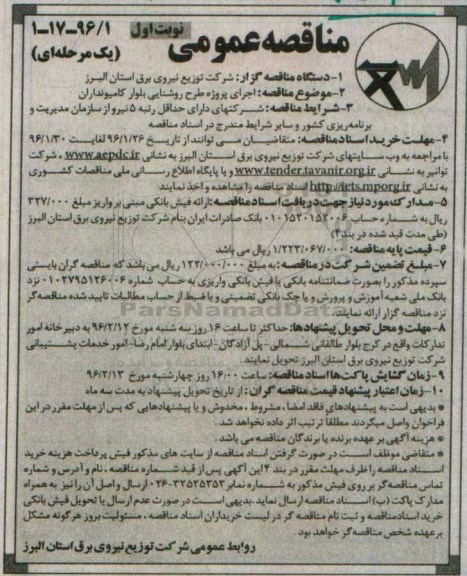 نوبت اول
۱-۱۷-۹۶/۱
مناقصه عمومی
(یک مرحله‌ای)
۱-دستگاه مناقصه گزار: شرکت توزیع نیروی برق استان البرز
۲-موضوع مناقصه: اجرای پروژه طرح روشنایی بلوار کامیونداران
۳-شرایط مناقصه: شرکتهای دارای حداقل رتبه ۵ نیرو از سازمان مدیریت و
برنامه‌ریزی کشور و سایر شرایط مندرج در اسناد مناقصه
۴-مهلت خرید اسناد مناقصه: متقاضیان می توانند از تاریخ ۹۶/۱/۲۶ لغایت ۹۶/۱/۳۰
با مراجعه به وب سایتهای شرکت توزیع نیروی برق استان البرز به نشانی www.aepdc.ir ، شرکت
توانیر به نشانی www.tender.tavanir.org.ir و یا پایگاه اطلاع رسانی ملی مناقصات کشوری
به نشانی http://iets.mporg.ir اسناد مناقصه را مشاهده و اخذ نمایند
۵-مدارک مورد نیاز جهت دریافت اسناد مناقصه: ارائه فیش بانکی مبنی بر واریز مبلغ ۳۲۷/۰۰۰
ریال به شماره حساب ۰۱۰۱۵۲۰۱۵۲۰۰۶ بانک صادرات ایران بنام شرکت توزیع نیروی برق استان البرز
(طی مدت قید شده در بند۴)
۶-قیمت پایه مناقصه: ۱/۲۲۳/۰۶۷/۰۰۰ ریال می باشد
۷-مبلغ تضمین شرکت در مناقصه: به مبلغ ۱۲۳/۰۰۰/۰۰۰ ریال می باشد که مناقصه گران بایستی
سپرده مذکور را بصورت ضمانتنامه بانکی یا فیش بانکی واریزی به حساب شماره ۰۱۰۲۷۹۵۱۲۶۰۰۶ نزد
بانک ملی شعبه آموزش و پرورش و یا چک بانکی تضمینی و یا ضبط از حساب مطالبات تایید شده مناقصه‌گر
نزد مناقصه گزار ارائه نمایند.
ParsNamadData
۸-مهلت و محل تحویل پیشنهادها: حداکثر تا ساعت ۱۶ روز سه شنبه مورخ ۹۶/۲/۱۲ به دبیرخانه امور
تدارکات واقع در کرج بلوار طالقانی شمالی-پل آزادگان-ابتدای بلوار امام رضا-امور خدمات پشتیبانی
شرکت توزیع نیروی برق استان البرز تحویل نمایند.
۹-زمان گشایش پاکت‌ها اسناد مناقصه: ساعت ۱۶:۰۰ روز چهارشنبه مورخ ۹۶/۲/۱۳
۱۰-زمان اعتبار پیشنهاد قیمت مناقصه گران: از تاریخ تحویل پیشنهاد به مدت سه ماه
* بدیهی است به پیشنهادهای فاقد امضا، مشروط، مخدوش و یا پیشنهادهایی که پس از مهلت مقرر در این
فراخوان واصل میگردند مطلقا ترتیب اثر داده نخواهد شد.
* هزینه آگهی بر عهده برنده یا برندگان مناقصه می باشد.
* متقاضی موظف است در صورت گرفتن اسناد مناقصه از سایت های مذکور فیش پرداخت هزینه خرید
اسناد مناقصه را ظرف مهلت مقرر در بند ۴ این آگهی پس از قید شماره مناقصه، نام و آدرس و شماره
تماس مناقصه گر بر روی فیش مذکور به شماره نمابر ۰۲۶-۳۲۵۲۵۳۵۳ ارسال و اصل آن را نیز به همراه
مدارک پاکت (ب) اسناد مناقصه ارسال نماید. بدیهی است در صورت عدم ارسال یا تحویل فیش بانکی
خرید اسناد مناقصه و ثبت نام مناقصه گر در لیست خریداران اسناد مناقصه، مسئولیت بروز هرگونه مشکل
بر عهده شخص مناقصه گر خواهد بود.
روابط عمومی شرکت توزیع نیروی برق استان البرز